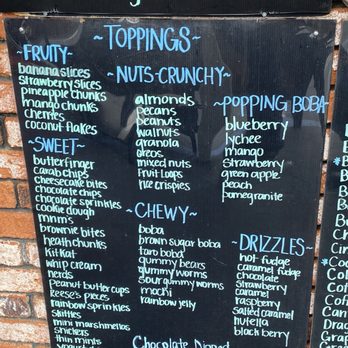 ~TOPPINGS~
~FRUITY~
banana slices
strawberry slices
pineapple chunks
mango chunks
cherries
coconut flakes
~SWEET~
butterfinger
carob chips
cheesecake bites
chocolate chips
chocolate sprinkles
cookie dough
m&m's
brownie bites
heath chunks
kitkat
whip cream
nerds
Peanut butter cups
Reese's pieces
rainbow sprinkles
skittles
mini marshmellos
snickers
thin mints
~NUTS-CRUNCHY~
almonds
pecans
peanuts
walnuts
granola
oreos
mixed nuts
fruit loops
rice crispies
~CHEWY~
boba
brown sugar boba
taro boba
gummy bears
gummy worms
sour gummy worms
mochi
rainbow jelly
Chocolate Dipped
~POPPING BOBA
blueberry
lychee
mango
strawberry
green apple
peach
pomegranite
~DRIZZLES~
hot fudge
caramel fudge
chocolate
strawberry
caramel
raspberry
salted caramel
nutella
black berry